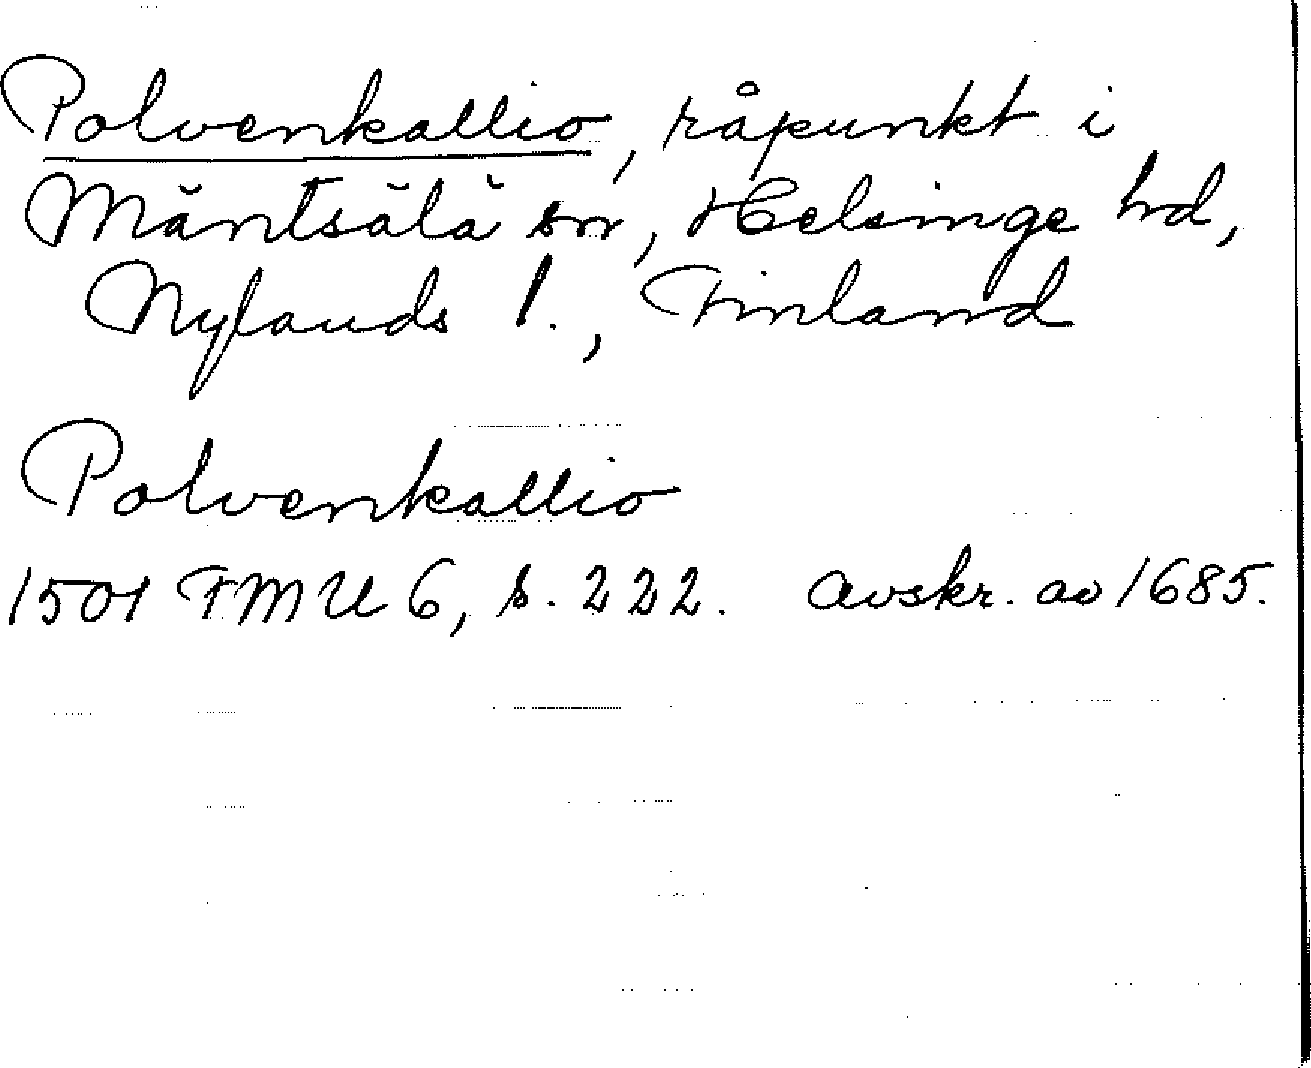 Polvenkallio, råpunkt i
Mäntsälä sn, Helsinge hd,
Nylands l., Finland
Polvenkallio
1501 FMU 6, s. 222. Avskr. av 1685.